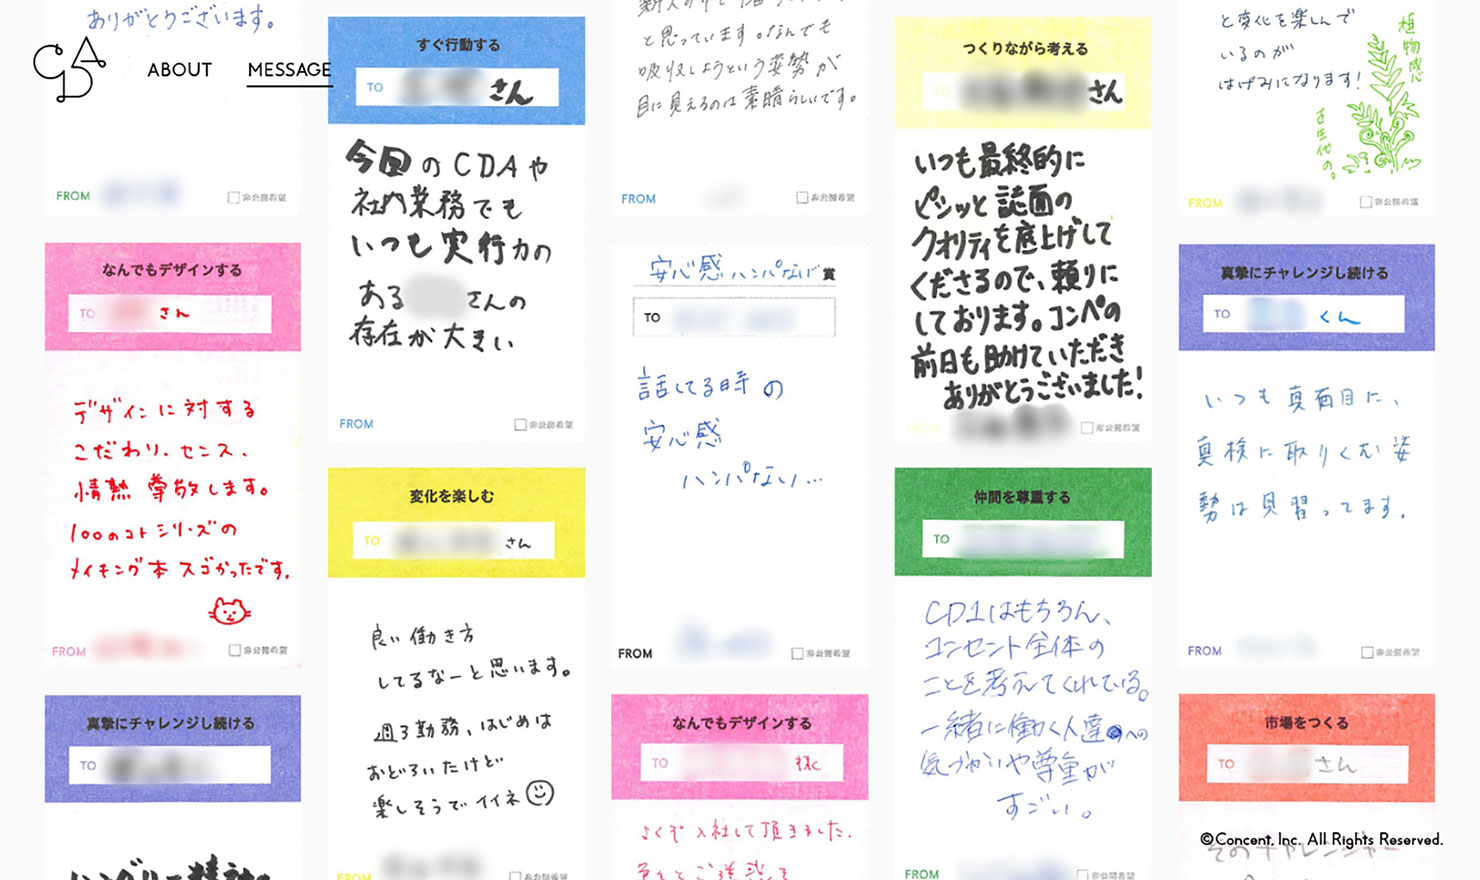 CDA
ABOUT
MESSAGE
ありがとうございます。
FROM
非公開希望
なんでもデザインする
TO
さん
デザインに対する
こだわり、センス、
情熱 尊敬します。
100のコトシリーズの
メイキング本 スゴかったです。
FROM
非公開希望
真摯にチャレンジし続ける
TO
すぐ行動する
TO
さん
今回のCDAや
社内業務でも
いつも実行力の
ある さんの
存在が大きい
FROM
非公開希望
変化を楽しむ
TO
さん
良い働き方
してるなーと思います。
週3勤務、はじめは
おどろいたけど
楽しそうでイイネ
FROM
非公開希望
と思っています。なんでも
吸収しようという姿勢が
目に見えるのは素晴らしいです。
FROM
非公開希望
安心感ハンパない賞
TO
話してる時の
安心感
ハンパない…
FROM
非公開希望
なんでもデザインする
TO
様
よくぞ入社して頂きました。
つくりながら考える
TO
さん
いつも最終的に
ピシッと誌面の
クオリティを底上げして
くださるので、頼りに
しております。コンペの
前日も助けていただき
ありがとうございました!
非公開希望
仲間を尊重する
TO
CD1はもちろん、
コンセント全体の
ことを考えてくれている。
一緒に働く人達への
気づかいや尊重が
すごい。
FROM
非公開希望
と変化を楽しんで
いるのが
はげみになります!
植物感
FROM
非公開希望
真摯にチャレンジし続ける
TO
くん
いつも真面目に、
真検に取りくむ姿
勢は見習ってます。
FROM
非公開希望
市場をつくる
TO
さん
そのチャレンジャー
©Concent, Inc. All Rights Reserved.